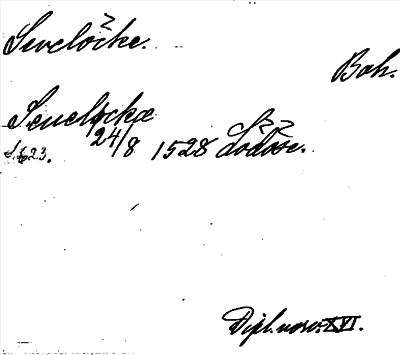 Sevelöcke.
Boh.
Seuelöckæ
24/8 1528 Lödöse.
S. 623.
Dipl. norv. XVI.